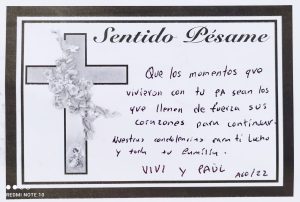 Sentido Pésame
Que los momentos que
vivieron con tu PA sean los
que llenen de fuerza sus
corazones para continuar.
Nuestras condolencias para ti Lucho
y toda tu familia.
VIVI y PAÚL AGO/22
REDMI NOTE 10